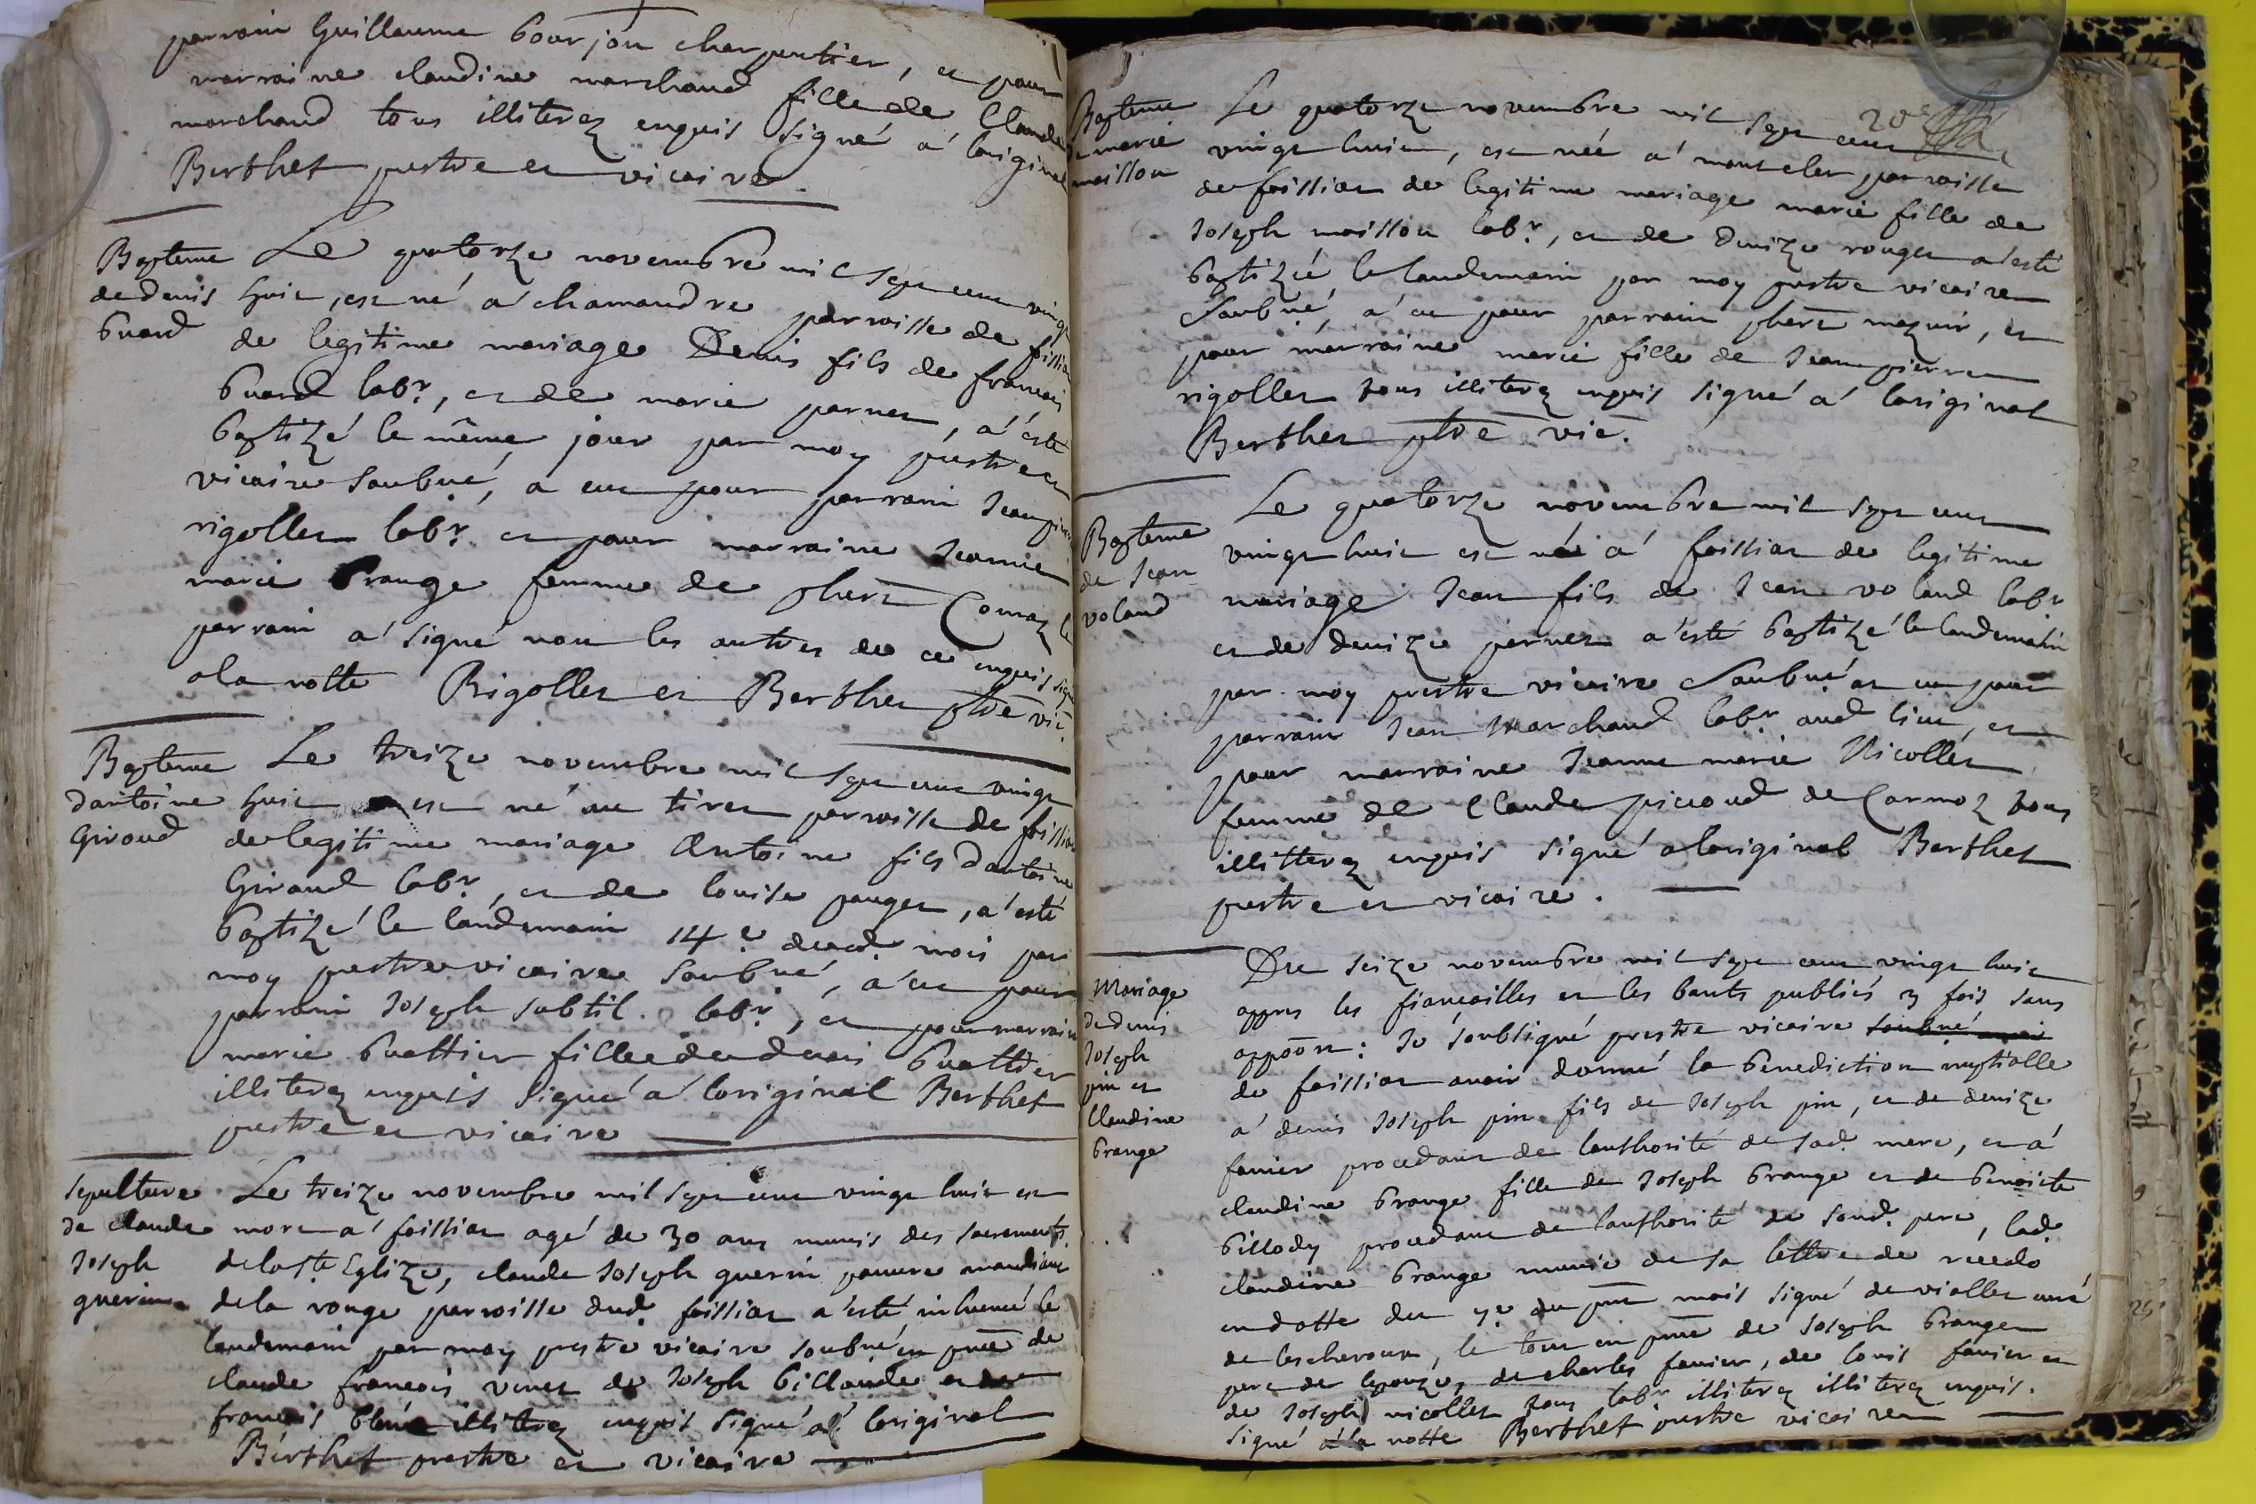 parrain Guillaume bourjon charpentier, et pour
marraine claudine marchand fille de Claude
marchand tous illiterez enquis signé a loriginal
Berthet prestre et vicaire
Bapteme
de denis
buard
Le quatorze novembre mil sept cent vingt
huit, est né a chamandre parroisse de foissiat
de legitime mariage Denis fils de francois
buard labr, et de marie parnet, a esté
baptizé le même jour par moy prestre et
vicaire soubné, a eut pour parrain Jean pierre
rigollet labr et pour marraine Jeanne
marie brange femme de phert Comaz le
parrain a signé non les autres de ce enquis signé
a la notte Rigollet et Berthet ptre vic.
Bapteme
dantoine
Giroud
Le treize novembre mil sept cent vingt
huit est né au tiret parroisse de foissiat
de legitime mariage Antoine fils dantoine
Giraud labr, et de louise pauget, a esté
baptizé le landemain 14e dud. mois par
moy prestre vicaire soubné, a eut pour
parrain Joseph subtil labr, et pour marraine
marie buattier fille de denis buattier
illiterez enquis signé a loriginal Berthet
prestre et vicaire
sepulture
de claude
Joseph
guerin
Le treize novembre mil sept cent vingt huit est
mort a foissiat agé de 30 ans munis des sacrements
de la ste Eglize, claude Joseph guerin pauvre mandiant
de la rouge parroisse dud. foissiat a esté inhumé le
landemain par moy prestre vicaire soubné en pnce de
claude francois vivet de Joseph billoude et de
francois illiterez enquis signé a loriginal
Berthet prestre et vicaire
20e
Bapteme
de marie
moisson
Le quatorze novembre mil sept cent
vingt huit, est née a montcler parroisse
de foissiat de legitime mariage marie fille de
Joseph moisson labr, et de denize rouget a esté
baptizée le landemain par moy prestre vicaire
soubné, a eut pour parrain phert mazuir, et
pour marraine marie fille de Jean pierre
rigollet tous illiterez enquis signé a loriginal
Berthet ptre vic.
Bapteme
de Jean
voland
Le quatorze novembre mil sept cent
vingt huit est né a foissiat de legitime
mariage Jean fils de Jean voland labr
et de denize pernet a esté baptizé le landemain
par moy prestre vicaire soubné at eut pour
parrain Jean Marchand labr aud lieu, et
pour marraine Jeanne marie Nicollet
femme de Claude picaoud de Carmoz tous
illitterez enquis signé a loriginal Berthet
prestre et vicaire.
Mariage
de denis
Joseph
pin et
Claudine
brange
Du seize novembre mil sept cent vingt huit
appres les fiancailles et les bants publiés 3 fois sans
appoon: Je soubsigné prestre vicaire soubné avoir
de foissiat avoir donné la benediction nuptialle
a denis Joseph pin fils de Joseph pin, et de denize
favier procedant de lauthorité de sad. mere, et a
claudine brange fille de Joseph brange et de benoiste
billody procedant de lauthorité de sond. pere, lad.
claudine brange munie de sa lettre de recedo
en datte du 7e du pnt mois signé de viallet curé
de lescheroux, le tout en pnce de Joseph branget
pere de lepouze, de charles favier, de louis favier et
de Joseph nicollet tous labr illiterez illiterez enquis.
signé a la notte Berthet prestre vicaire